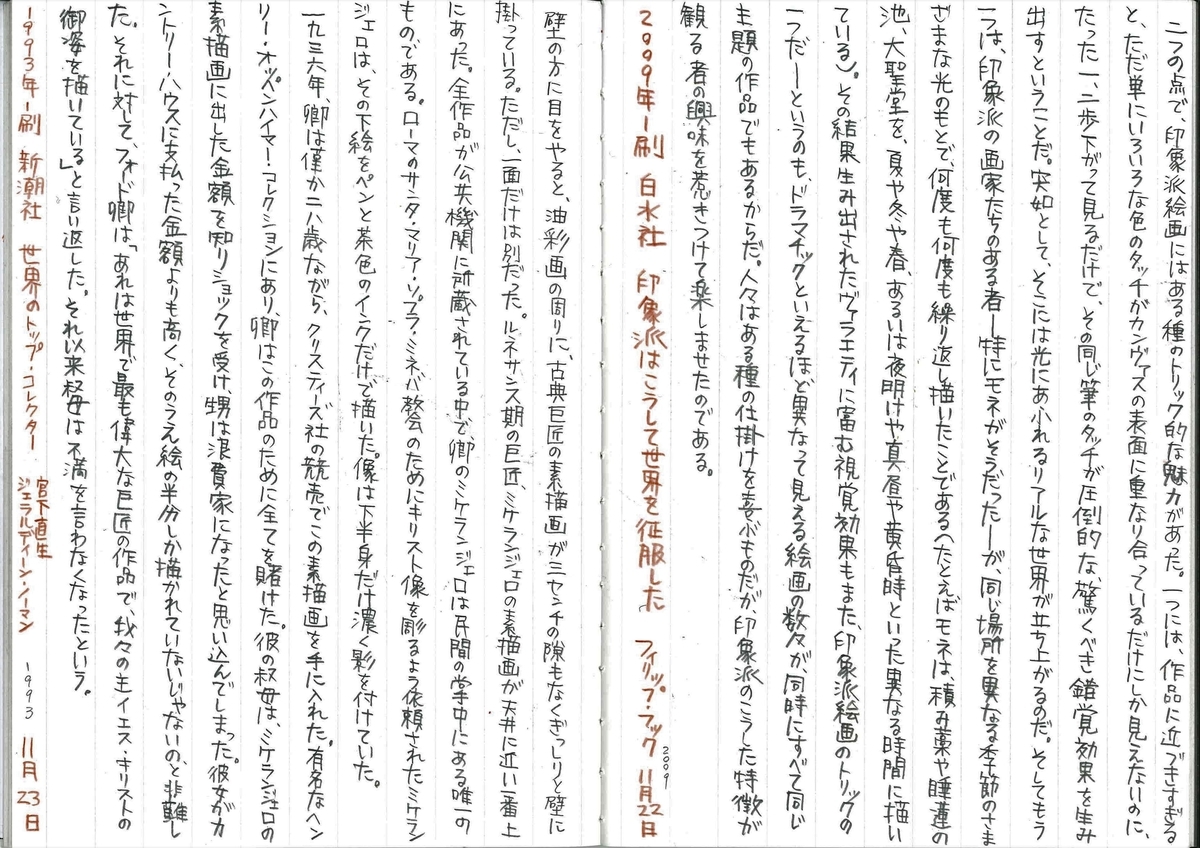 二つの点で、印象派絵画にはある種のトリック的な魅力があった。一つには、作品に近づきすぎる
と、ただ単にいろいろな色のタッチがカンヴァスの表面に重なり合っているだけにしか見えないのに、
たった一、二歩下がって見るだけで、その同じ筆のタッチが圧倒的な、驚くべき錯覚効果を生み
出すということだ。突如として、そこには光にあふれるリアルな世界が立ち上がるのだ。そしてもう
一つは、印象派の画家たちのある者―特にモネがそうだった―が、同じ場所を異なる季節のさま
ざまな光のもとで、何度も何度も繰り返し描いたことである(たとえばモネは、積み藁や睡蓮の
池、大聖堂を、夏や冬や春、あるいは夜明けや真昼や黄昏時といった異なる時間に描い
ている)。その結果生み出されたヴァラエティに富む視覚効果もまた、印象派絵画のトリックの
一つだ―というのも、ドラマチックといえるほど異なって見える絵画の数々が、同時にすべて同じ
主題の作品でもあるからだ。人々はある種の仕掛けを喜ぶものだが、印象派のこうした特徴が
観る者の興味を惹きつけて楽しませたのである。
2009年1刷 白水社 印象派はこうして世界を征服した フィリップ・フック 2009 11月22日
壁の方に目をやると、油彩画の周りに、古典巨匠の素描画が三センチの隙もなくぎっしりと壁に
掛っている。ただし、一面だけは別だった。ルネサンス期の巨匠、ミケランジェロの素描画が天井に近い一番上
にあった。全作品が公共機関に所蔵されている中で、卿のミケランジェロは民間の掌中にある唯一の
ものである。ローマのサンタ・マリア・ソプラ・ミネバ教会のためにキリスト像を彫るよう依頼されたミケラン
ジェロは、その下絵をペンと茶色のインクだけで描いた。像は下半身だけ濃く影を付けていた。
一九三六年、卿は僅か二八歳ながら、クリスティーズ社の競売でこの素描画を手に入れた。有名なヘン
リー・オッペンハイマー・コレクションにあり、卿はこの作品のために全てを賭けた。彼の叔母は、ミケランジェロの
素描画に出した金額を知りショックを受け、甥は浪費家になったと思い込んでしまった。彼女がカ
ントリーハウスに支払った金額よりも高く、そのうえ絵の半分しか描かれていないじゃないの、と非難し
た。それに対して、フォード卿は「あれは世界で最も偉大な巨匠の作品で、我々の主イエス・キリストの
御姿を描いている」と言い返した。それ以来叔母は不満を言わなくなったという。
1993年1刷 新潮社 世界のトップ・コレクター 宮下直生 ジェラルディーン・ノーマン 1993 11月23日